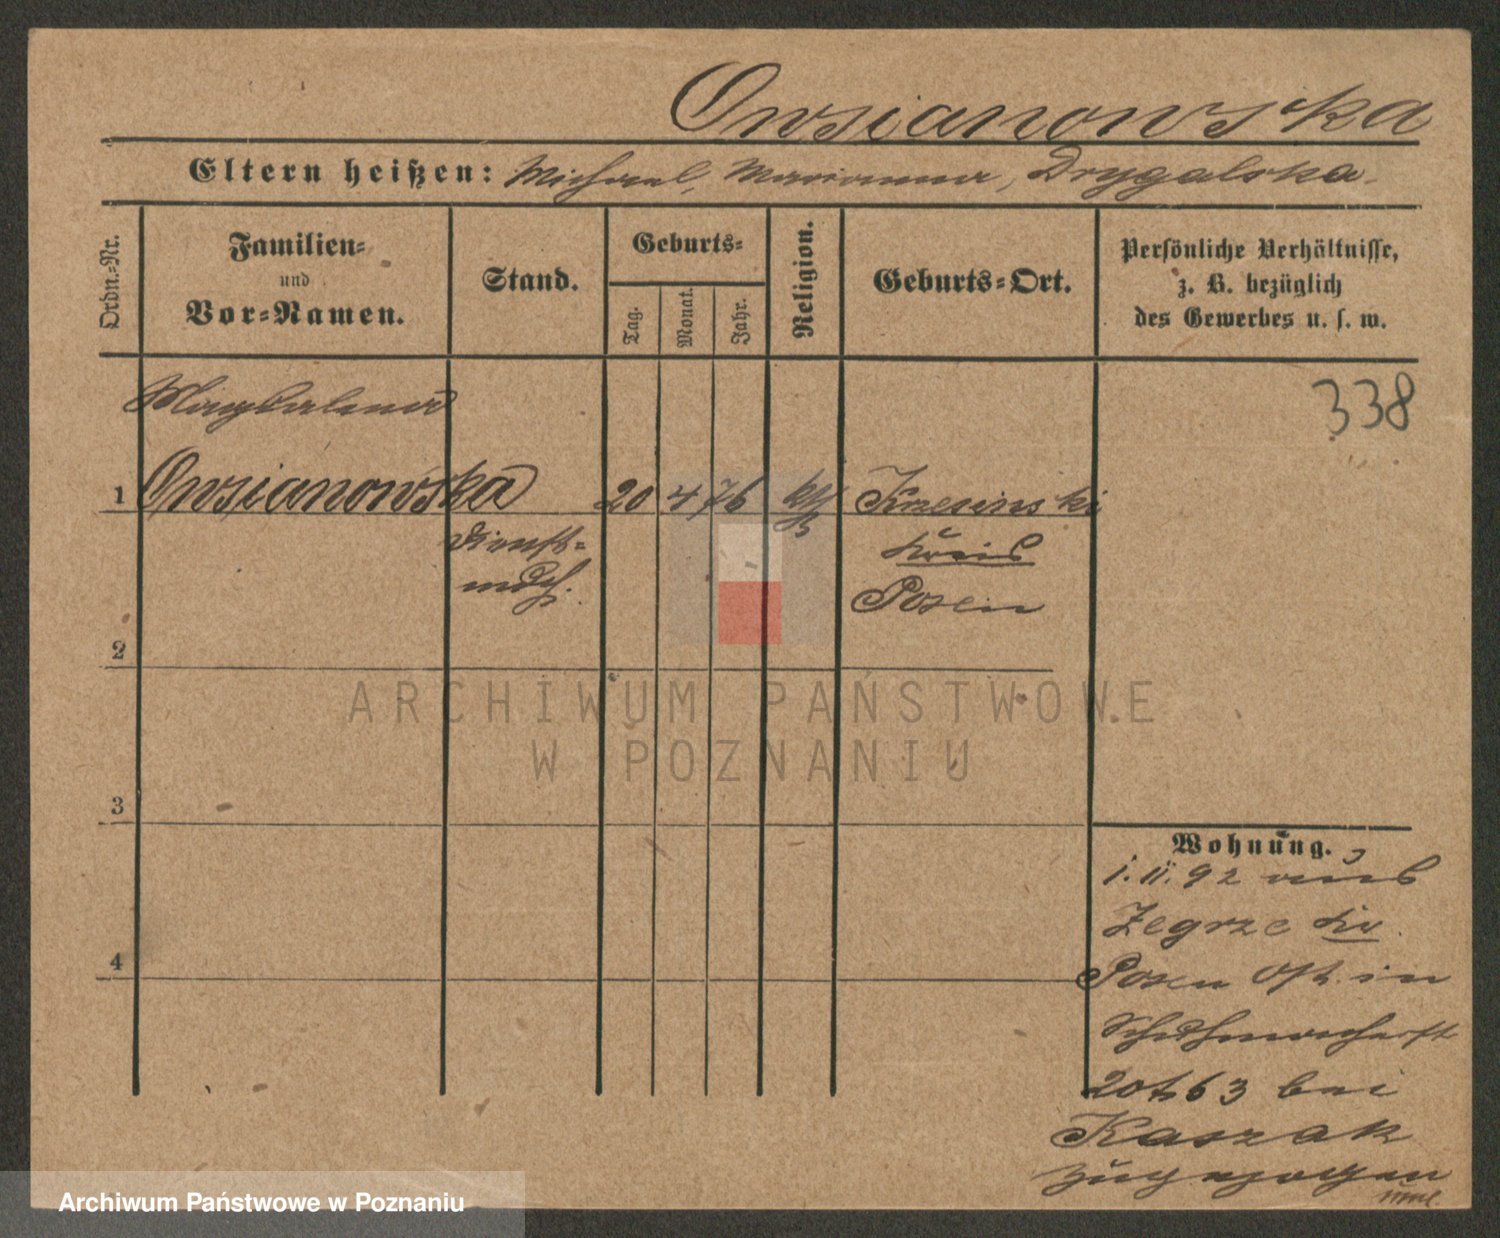 Owsianowska
Eltern heißen: Michael, Marianna, Drygalska
Ordn.=Nr.
Familien=
und
Vor=Namen.
Stand.
Geburts=
Tag.
Monat.
Jahr.
Religion.
Geburts=Ort.
Persönliche Verhältnisse,
z. B. bezüglich
des Gewerbes u. s. w.
338
Magdalena
1 Owsianowska 20 4 76 kth Krzesinski
Dienst=
mdch.
Kreis
Posen
2
ARCHIWUM PAŃSTWOWE
W POZNANIU
3
Wohnung.
1. 11. 92 aus
Zegrze Kr
Posen Ost. in
4
bei
Kaszak
zugezogen
Archiwum Państwowe w Poznaniu